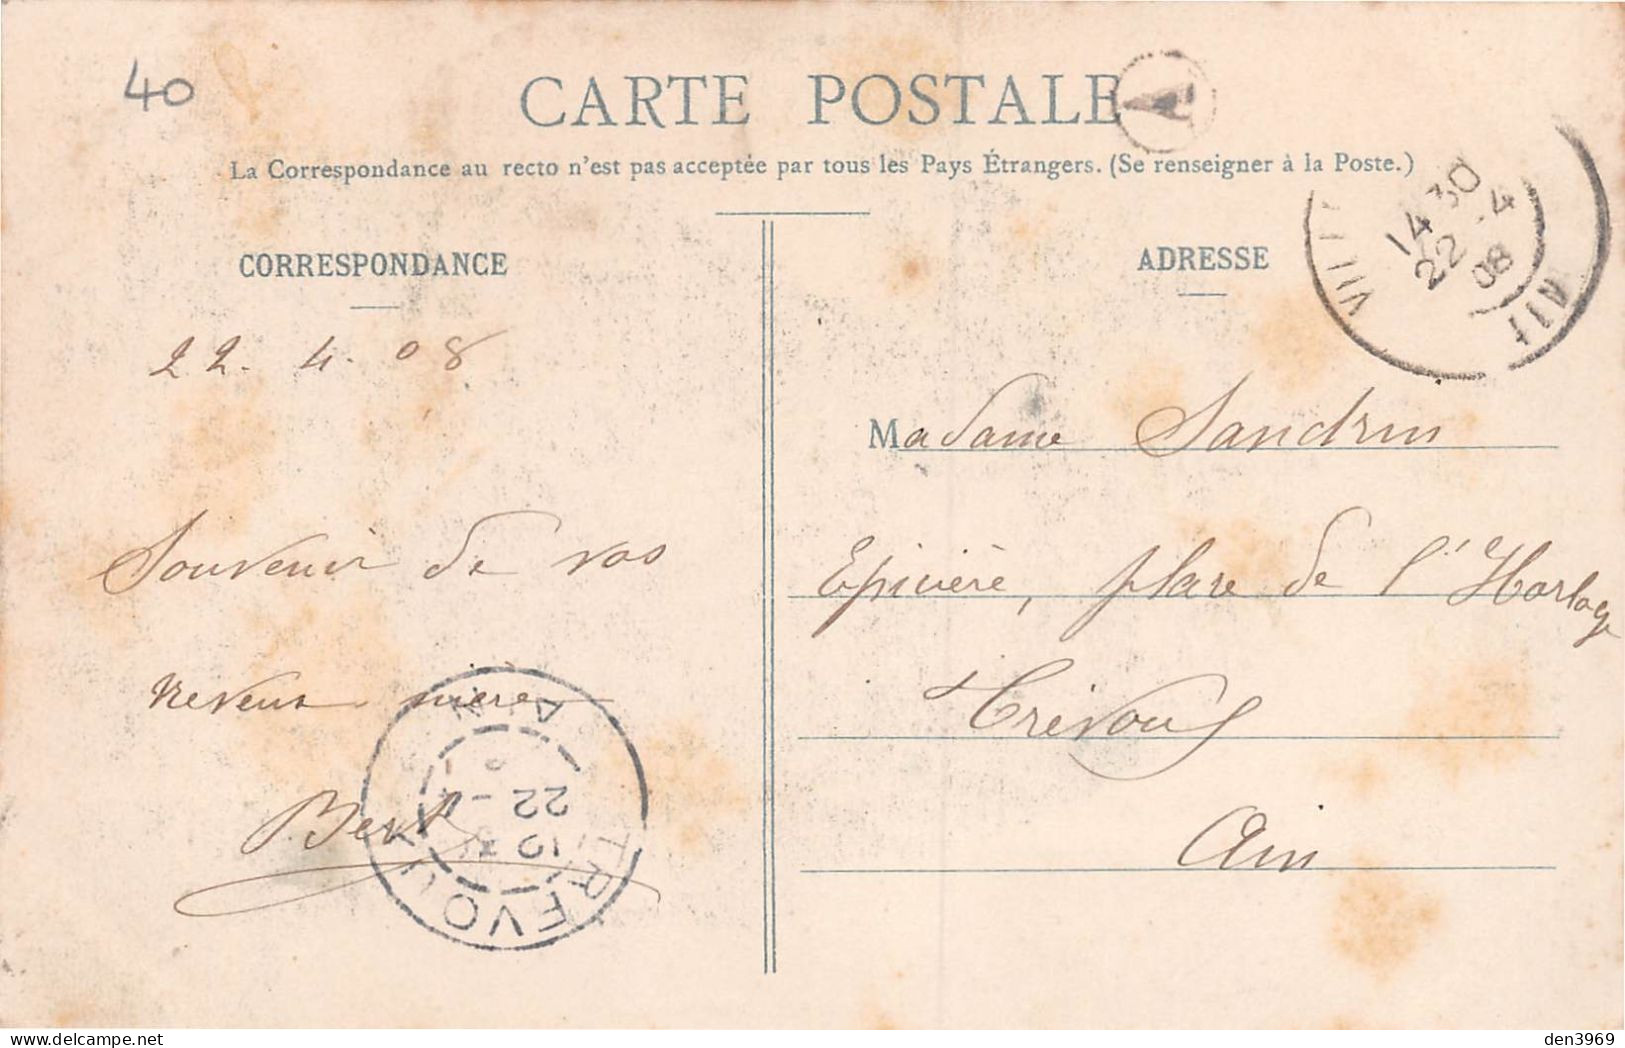 40
CARTE POSTALE
A
La Correspondance au recto n'est pas acceptée par tous les Pays Étrangers. (Se renseigner à la Poste.)
CORRESPONDANCE
ADRESSE
14 30
22 -4
08
AIN
22. 4. 08
Madame Sandrin
Epicière, place de l'Horloge
Trévoux
Ain
Souvenir de vos
neveux
Bert
TREVOUX
AIN
22 - 4
den3969